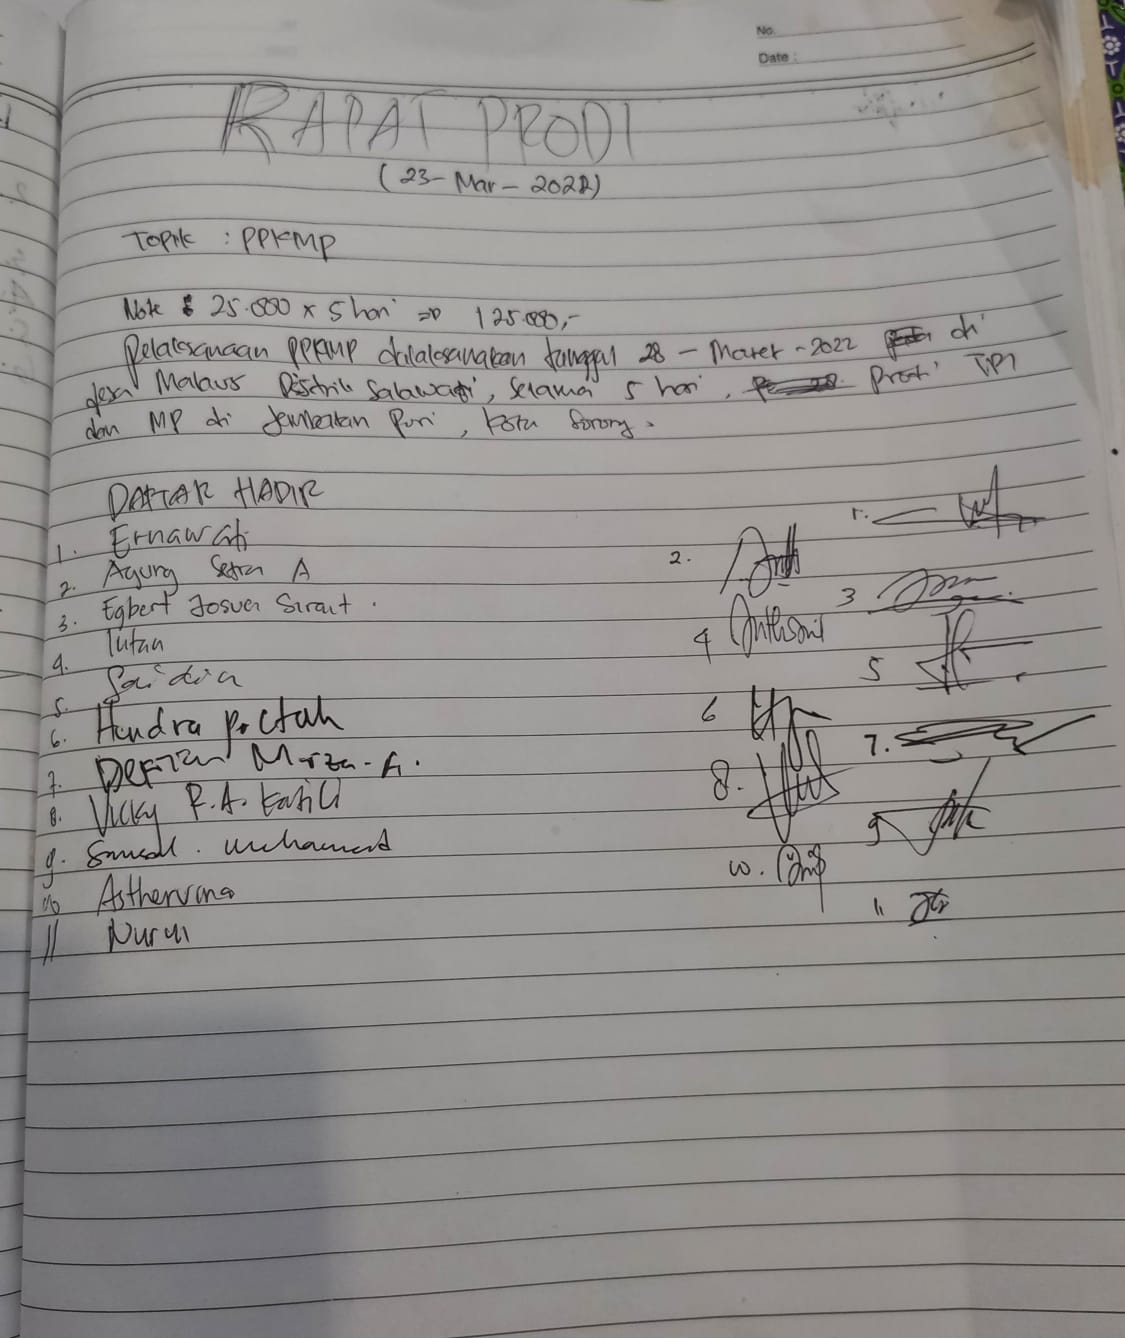 No.
Date :
RAPAT PRODI
(23-Mar-2022)
Topik : PPKMP
Note : 25.000 x 5 hari => 125.000,-
Pelaksanaan PPKMP dilaksanakan tanggal 28 - Maret - 2022 di
desa Malaus Distrik Salawati, selama 5 hari, Prodi TPI
dan MP di Jembatan Puri, Kota Sorong.
DAFTAR HADIR
1. Ernawati
2. Agung Setia A
3. Egbert Josua Sirait.
4. Intan
5. Saidin
6. Hendra Poltak
7. Mirza-A.
8. Vicky R.A. Katili
9. Muhamad
10 Asthervina
11 Nurul
1.
2.
3
4
5
6
7.
8.
9
10.
11